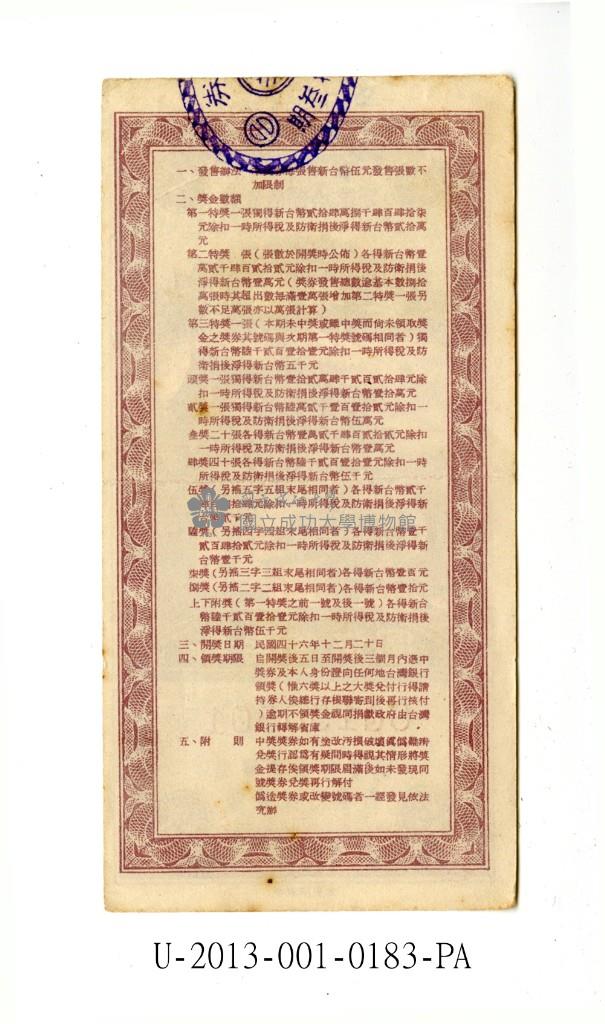 券
三
期叁
一、發售辦法 每張售新台幣伍元發售張數不
加限制
二、獎金數額
第一特獎一張獨得新台幣貳拾肆萬捌千肆百肆拾柒
元除扣一時所得稅及防衛捐後淨得新台幣貳拾萬
元
第二特獎 張(張數於開獎時公佈)各得新台幣壹
萬貳千肆百貳拾貳元除扣一時所得稅及防衛捐後
淨得新台幣壹萬元(獎券發售總數逾基本數捌拾
萬張時其超出數每滿壹萬張增加第二特獎一張另
數不足萬張亦以萬張計算)
第三特獎一張(本期未中獎或雖中獎而尚未領取獎
金之獎券其號碼與次期第一特獎號碼相同者)獨
得新台幣陸千貳百壹拾壹元除扣一時所得稅及防
衛捐後淨得新台幣五千元
頭獎一張獨得新台幣壹拾貳萬肆千貳百貳拾肆元除
扣一時所得稅及防衛捐後淨得新台幣壹拾萬元
貳獎一張獨得新台幣陸萬貳千壹百壹拾貳元除扣一
時所得稅及防衛捐後淨得新台幣伍萬元
叁獎二十張各得新台幣壹萬貳千肆百貳拾貳元除扣
一時所得稅及防衛捐後淨得新台幣壹萬元
肆獎四十張各得新台幣陸千貳百壹拾壹元除扣一時
所得稅及防衛捐後淨得新台幣伍千元
伍獎(另補五字五組末尾相同者)各得新台幣貳千
元除扣一時所得稅及防衛捐後淨得新
台幣貳千元
國立成功大學博物館
陸獎(另補四字四組末尾相同者)各得新台幣壹千
貳百肆拾貳元除扣一時所得稅及防衛捐後淨得新
台幣壹千元
柒獎(另補三字三組末尾相同者)各得新台幣壹百元
捌獎(另補二字二組末尾相同者)各得新台幣壹拾元
上下附獎(第一特獎之前一號及後一號)各得新台
幣陸千貳百壹拾壹元除扣一時所得稅及防衛捐後
淨得新台幣伍千元
三、開獎日期 民國四十六年十二月二十日
四、領獎期限 自開獎後五日至開獎後三個月內憑中
獎券及本人身份證向任何地台灣銀行
領獎(惟六獎以上之大獎兌付行得請
持券人俟總行存根聯寄到後再行核付
)逾期不領獎金視同捐獻政府由台灣
銀行轉解省庫
五、附 則 中獎獎券如有塗改污損破壞真偽難辨
兌獎行認為有疑問時得視其情形將獎
金提存俟領獎期限屆滿後如未發現同
號獎券兌獎再行解付
偽造獎券或改變號碼者一經發見依法
究辦
U-2013-001-0183-PA